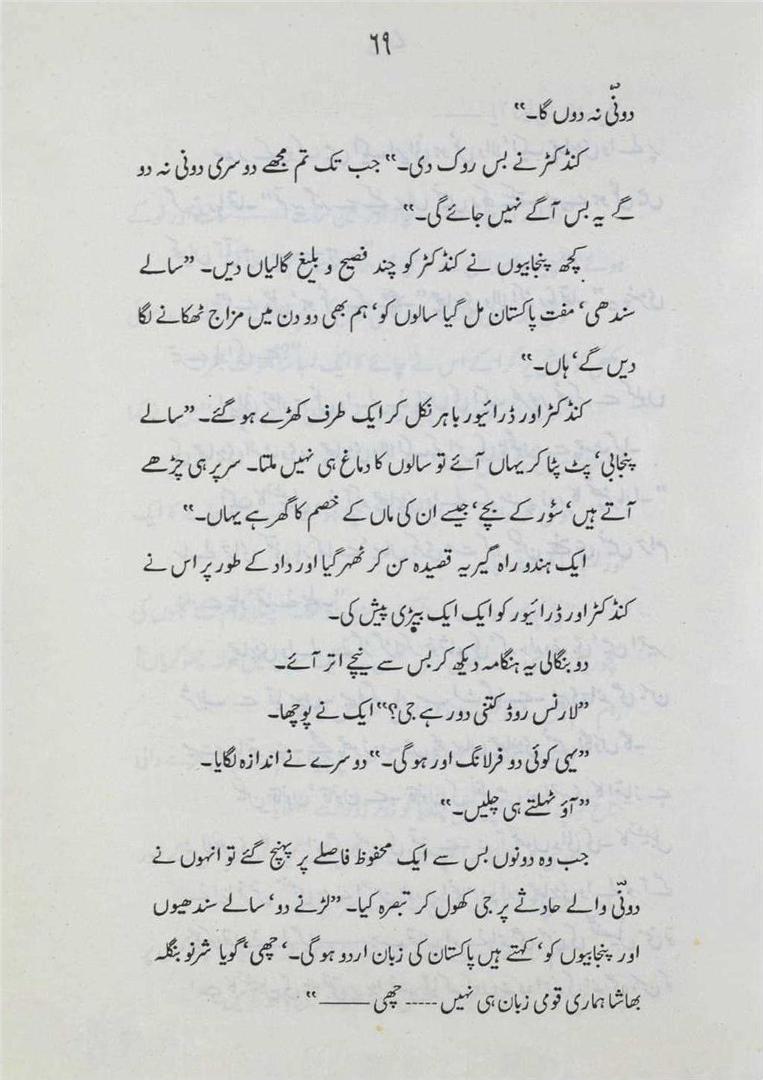 ٦٩
دونّی نہ دوں گا۔“
کنڈکٹر نے بس روک دی۔“ جب تک تم مجھے دوسری دونی نہ دو
گے یہ بس آگے نہیں جائے گی۔“
کچھ پنجابیوں نے کنڈکٹر کو چند فصیح و بلیغ گالیاں دیں۔ ”سالے
سندھی‘ مفت پاکستان مل گیا سالوں کو‘ ہم بھی دو دن میں مزاج ٹھکانے لگا
دیں گے‘ ہاں۔“
کنڈکٹر اور ڈرائیور باہر نکل کر ایک طرف کھڑے ہو گئے۔ ”سالے
پنجابی‘ پٹ پٹا کر یہاں آئے تو سالوں کا دماغ ہی نہیں ملتا۔ سر پر ہی چڑھے
آتے ہیں‘ سؤر کے بچے‘ جیسے ان کی ماں کے خصم کا گھر ہے یہاں۔“
ایک ہندو راہ گیر یہ قصیدہ سن کر ٹھہر گیا اور داد کے طور پر اس نے
کنڈکٹر اور ڈرائیور کو ایک ایک بیڑی پیش کی۔
دو بنگالی یہ ہنگامہ دیکھ کر بس سے نیچے اتر آئے۔
”لارنس روڈ کتنی دور رہے جی؟“ ایک نے پوچھا۔
”یہی کوئی دو فرلانگ اور ہو گی۔“ دوسرے نے اندازہ لگایا۔
”آؤ ٹہلتے ہی چلیں۔“
جب وہ دونوں بس سے ایک محفوظ فاصلے پر پہنچ گئے تو انہوں نے
دونّی والے حادثے پر جی کھول کر تبصرہ کیا۔ ”لڑنے دو‘ سالے سندھیوں
اور پنجابیوں کو‘ کہتے ہیں پاکستان کی زبان اردو ہو گی۔‘ چھی‘ گویا شرنو بنگلہ
بھاشا ہماری قومی زبان ہی نہیں ----- چھی ——— “